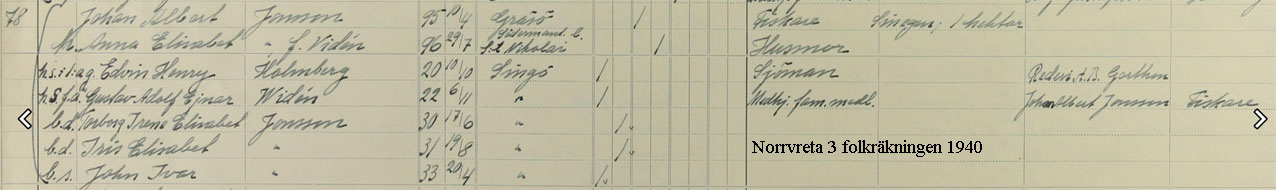 78 Johan Albert Jonsson 95 10/4 Gräsö / Fiskare Sin egen; 1 hektar
h. Anna Elisabet " f. Vidén 96 29/7 Södermanl. l. S:t Nikolai / Husmor
h.s.i.d.äg. Edvin Henry Holmberg 20 10/10 Singö / Sjöman Rederi A.B. Gorthon
h.s.f.ä. Gustav Adolf Ejnar Widén 22 6/11 " / Medhj. fam.medl. Johan Albert Jonsson Fiskare
b.d. Torborg Irene Elisabet Jonsson 30 17/6 " /
b.d. Iris Elisabet " 31 19/8 " / Norrvreta 3 folkräkningen 1940
b.s. John Ivar " 33 20/4 " /